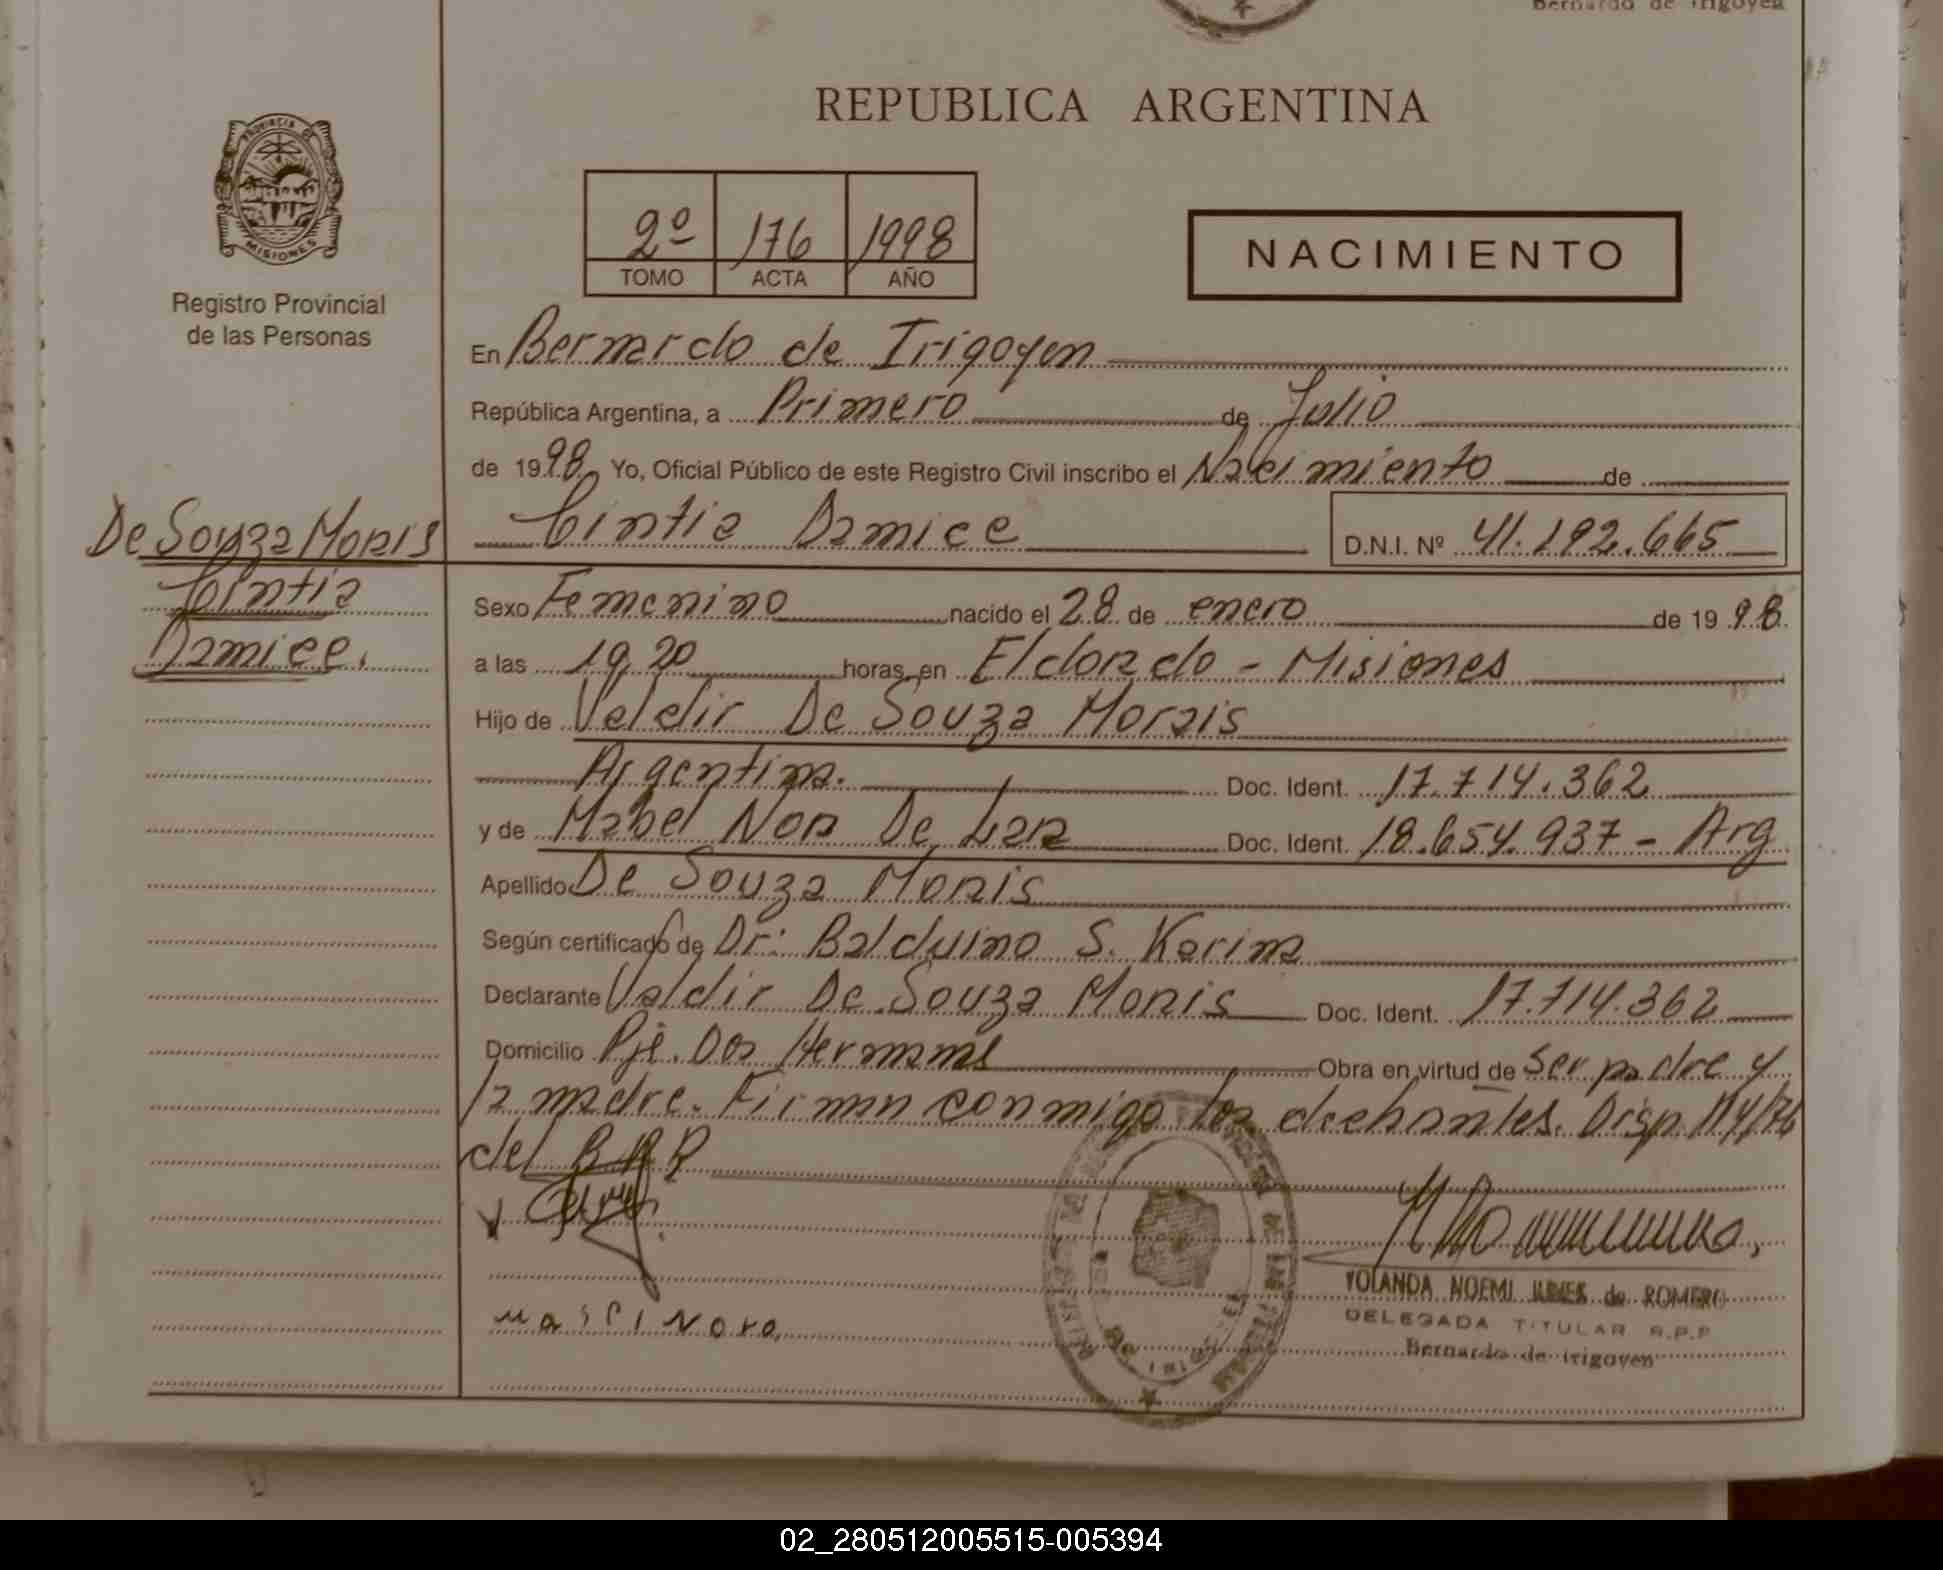 Bernardo de Irigoyen
REPUBLICA ARGENTINA
PROVINCIA DE
MISIONES
Registro Provincial
de las Personas
2º 176 1998
TOMO ACTA AÑO
NACIMIENTO
En Bernardo de Irigoyen
República Argentina, a Primero de Julio
de 1998 Yo, Oficial Público de este Registro Civil inscribo el Nacimiento de
Cintia Damice D.N.I. Nº 41.192.665
De Souza Morais
Cintia
Damice.
Sexo Femenino nacido el 28 de enero de 1998
a las 19,20 horas, en Eldorado - Misiones
Hijo de Valdir De Souza Morais
Argentina. Doc. Ident. 17.714.362
y de Mabel Nora De Lara Doc. Ident. 18.654.937 - Arg
Apellido De Souza Morais
Según certificado de Dr. Balduino S. Karina
Declarante Valdir De Souza Morais Doc. Ident. 17.714.362
Domicilio Pje. Dos Hermanas Obra en virtud de Ser padre y
la madre. Firman conmigo los declarantes. Disp. 114/76
del
YOLANDA NOEMI de ROMERO
DELEGADA TITULAR R.P.P
Bernardo de Irigoyen
02_280512005515-005394